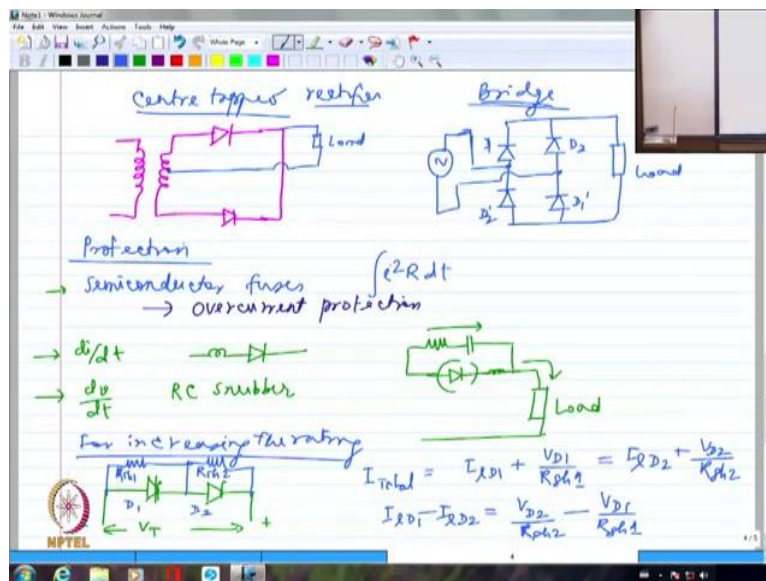 Note1 - Windows Journal
File Edit View Insert Actions Tools Help
Whole Page
Centre tapped rectifier
Bridge
Load
D2
D2'
D1'
Load
Protection
Semiconductor fuses
∫i²R dt
→ overcurrent protection
→ di/dt
→ dv/dt RC snubber
Load
For increasing the rating
Rsh1 Rsh2
D1 D2
VT +
I Total = IlD1 + VD1/Rsh1 = IlD2 + VD2/Rsh2
IlD1 - IlD2 = VD2/Rsh2 - VD1/Rsh1
NPTEL
4
4/5